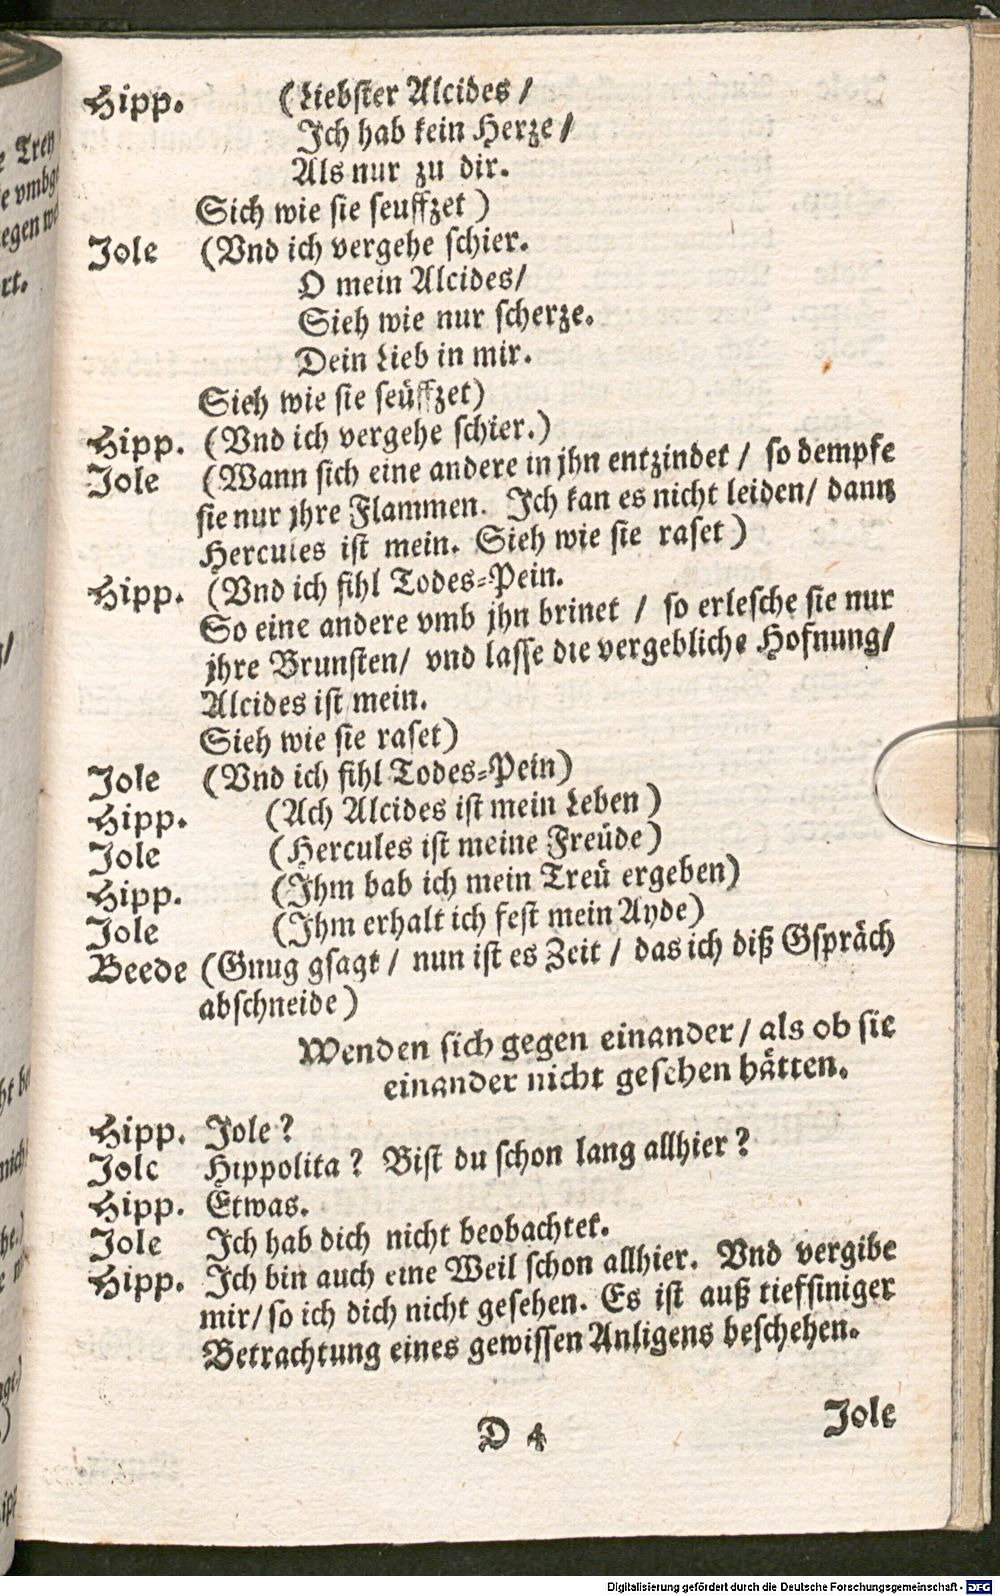 Hipp. (Liebster Alcides /
Ich hab kein Herze /
Als nur zu dir.
Sich wie sie seuffzet )
Jole (Vnd ich vergehe schier.
O mein Alcides/
Sieh wie nur scherze.
Dein Lieb in mir.
Sieh wie sie seüffzet)
Hipp. (Vnd ich vergehe schier.)
Jole (Wann sich eine andere in jhn entzindet / so dempfe
sie nur jhre Flammen. Ich kan es nicht leiden/ dann
Hercules ist mein. Sieh wie sie raset )
Hipp. (Vnd ich fihl Todes-Pein.
So eine andere vmb jhn brinet / so erlesche sie nur
jhre Brunsten/ vnd lasse die vergebliche Hofnung/
Alcides ist mein.
Sieh wie sie raset)
Jole (Vnd ich fihl Todes-Pein)
Hipp. (Ach Alcides ist mein Leben )
Jole (Hercules ist meine Freüde)
Hipp. (Ihm bab ich mein Treü ergeben)
Jole (Ihm erhalt ich fest mein Ayde)
Beede (Gnug gsagt / nun ist es Zeit / das ich diß Gspräch
abschneide)
Wenden sich gegen einander/ als ob sie
einander nicht gesehen hätten.
Hipp. Jole ?
Jole Hippolita ? Bist du schon lang allhier ?
Hipp. Etwas.
Jole Ich hab dich nicht beobachtet.
Hipp. Ich bin auch eine Weil schon allhier. Vnd vergibe
mir/ so ich dich nicht gesehen. Es ist auß tiefsiniger
Betrachtung eines gewissen Anligens beschehen.
D 4
Jole
Digitalisierung gefördert durch die Deutsche Forschungsgemeinschaft - DFG